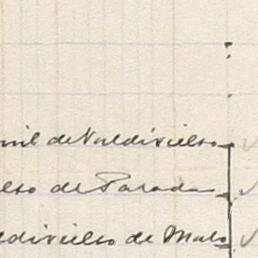 mil de Valdivielso
elso de Parada
ldivielso de Malo